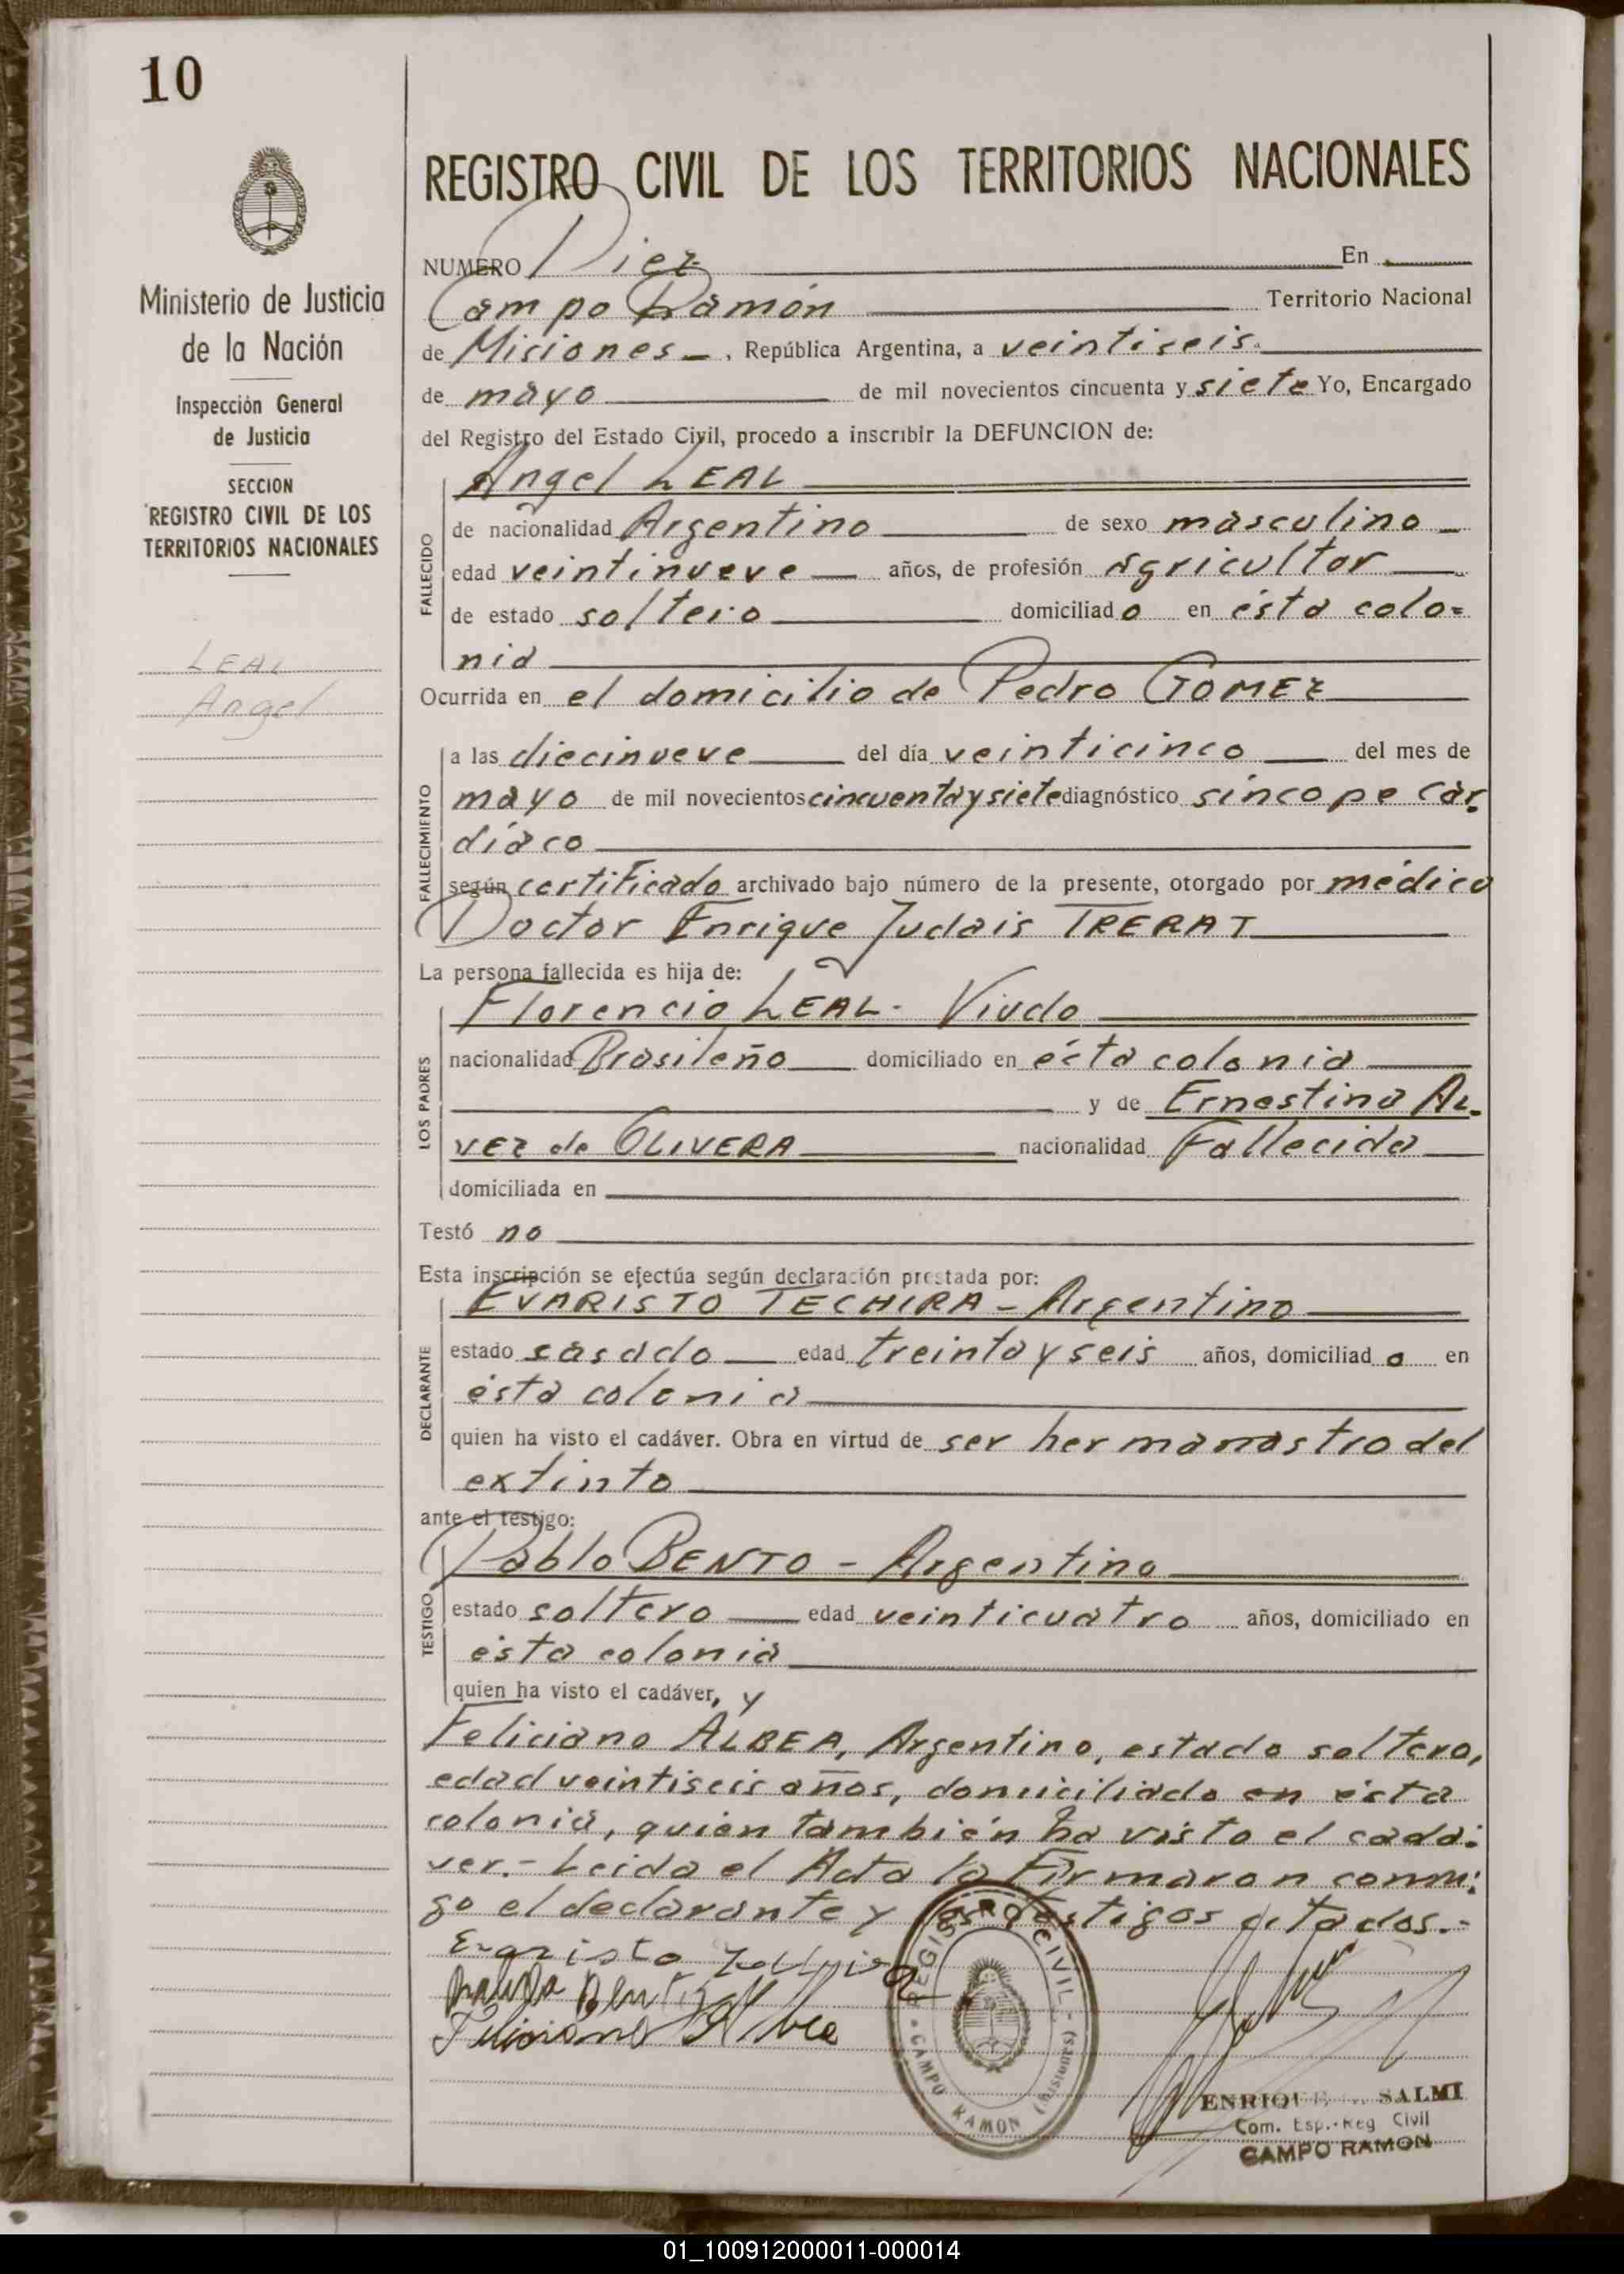 10
Ministerio de Justicia
de la Nación
Inspección General
de Justicia
SECCION
REGISTRO CIVIL DE LOS
TERRITORIOS NACIONALES
LEAL
Angel
REGISTRO CIVIL DE LOS TERRITORIOS NACIONALES
NUMERO Diez En
Campo Ramón Territorio Nacional
de Misiones, República Argentina, a veintiseis
de mayo de mil novecientos cincuenta y siete Yo, Encargado
del Registro del Estado Civil, procedo a inscribir la DEFUNCION de:
FALLECIDO
Angel LEAL
de nacionalidad Argentino de sexo masculino
edad veintinueve años, de profesión agricultor
de estado soltero domiciliado en ésta colo=
nia
Ocurrida en el domicilio de Pedro GOMEZ
FALLECIMIENTO
a las diecinueve del día veinticinco del mes de
mayo de mil novecientos cincuenta y siete diagnóstico síncope car-
díaco
según certificado archivado bajo número de la presente, otorgado por médico
Doctor Enrique Judais TRERAT
La persona fallecida es hija de:
LOS PADRES
Florencio LEAL - Viudo
nacionalidad Brasileño domiciliado en ésta colonia
y de Ernestina AL-
VEZ de OLIVERA nacionalidad Fallecida
domiciliada en
Testó no
Esta inscripción se efectúa según declaración prestada por:
DECLARANTE
EVARISTO TECHIRA - Argentino
estado casado edad treinta y seis años, domiciliado en
ésta colonia
quien ha visto el cadáver. Obra en virtud de ser hermanastro del
extinto
ante el testigo:
TESTIGO
Pablo BENTO - Argentino
estado soltero edad veinticuatro años, domiciliado en
ésta colonia
quien ha visto el cadáver, y
Feliciano ALBEA, Argentino, estado soltero,
edad veintiseis años, domiciliado en ésta
colonia, quien también ha visto el cadá=
ver.- Leida el Acta la Firmaron conmi=
go el declarante y los testigos citados.-
Evaristo
Feliciano Albea
REGISTRO CIVIL - CAMPO RAMON (Misiones)
ENRIQUE SALMI
Com. Esp. Reg Civil
CAMPO RAMON
01_100912000011-000014